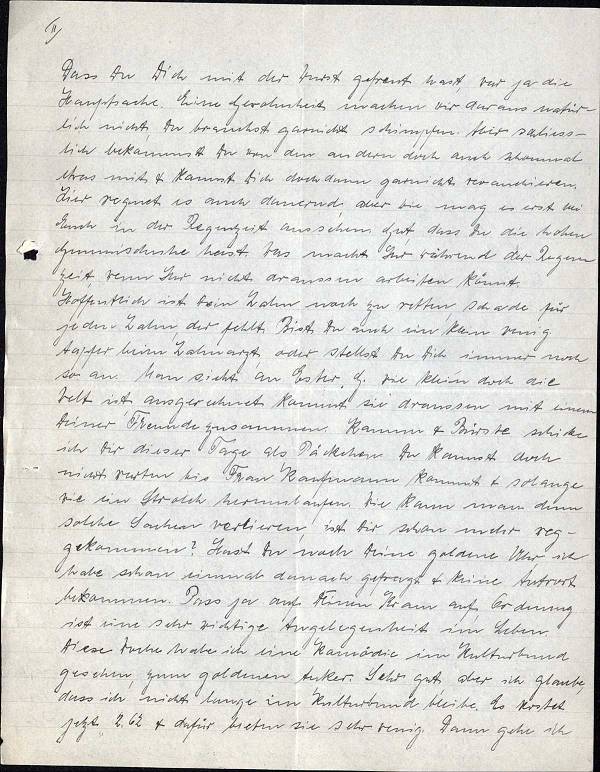 II)
Dass Du Dich mit der Wurst gefreut hast, war ja die
Hauptsache. Eine Gewohnheit machen wir daraus natür-
lich nicht Du brauchst garnicht schimpfen. Aber schliess-
lich bekommst Du von den andern doch auch schonmal
etwas mit & kannst Dich doch dann garnicht revanchieren.
Hier regnet es auch dauernd, aber wie mag es erst bei
Euch in der Regenzeit aussehen. Gut dass Du die hohen
Gummischuhe hast. Was macht Ihr während der Regen
zeit, wenn Ihr nicht draussen arbeiten könnt.
Hoffentlich ist Dein Zahn noch zu retten, schade für
jeden Zahn der fehlt. Bist Du auch ein klein wenig
tapfer beim Zahnarzt oder stellst Du Dich immer noch
so an. Man sieht an Ester, G. wie klein doch die
Welt ist ausgerechnet kommt sie draussen mit einem
Deiner Freunde zusammen. Kamm & Bürste schicke
ich Dir dieser Tage als Päckchen Du kannst doch
nicht warten bis Frau Kaufmann kommt & solange
wie ein Strolch herumlaufen. Wie kann man denn
solche Sachen verlieren, ist Dir schon mehr weg-
gekommen? Hast Du noch Deine goldene Uhr ich
habe schon einmal danach gefragt & keine Antwort
bekommen. Pass ja auf Deinen Kram auf Ordnung
ist eine sehr wichtige Angelegenheit im Leben.
Diese Woche habe ich eine Komödie im Kulturbund
gesehen, zum goldenen Anker. Sehr gut aber ich glaube,
dass ich nicht lange im Kulturbund bleibe. Es kostet
jetzt 2.62 & dafür bieten sie sehr wenig. Dann gehe ich